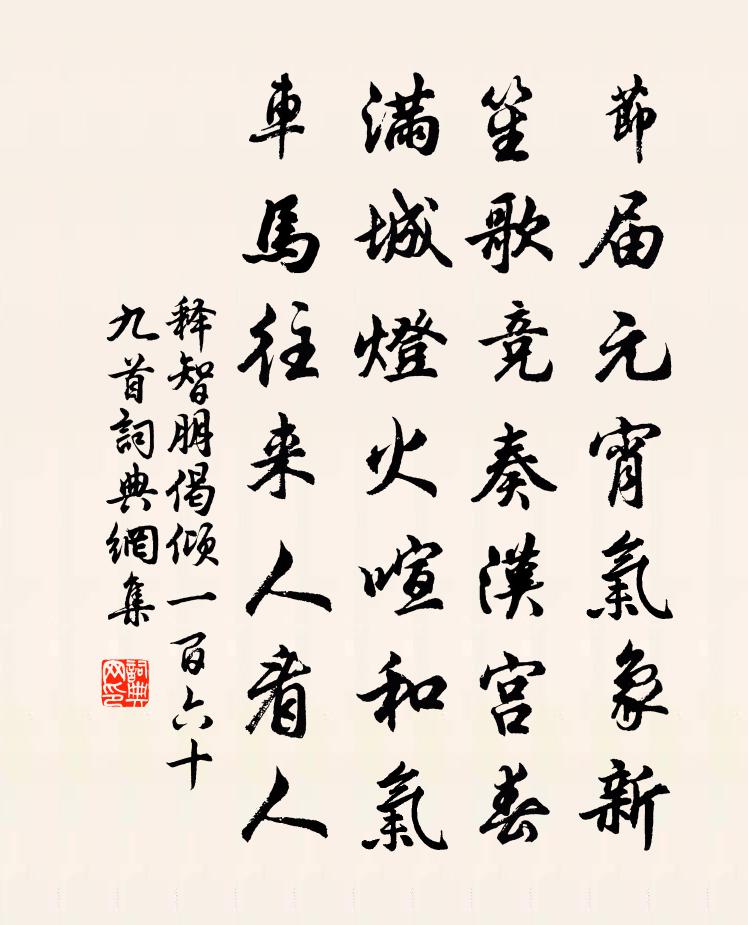 節届元宵氣象新
笙歌竞奏漢宮春
滿城燈火喧和氣
車馬往来人看人
释智朋偈傾一百六十
九首詞典網集
詞典網印